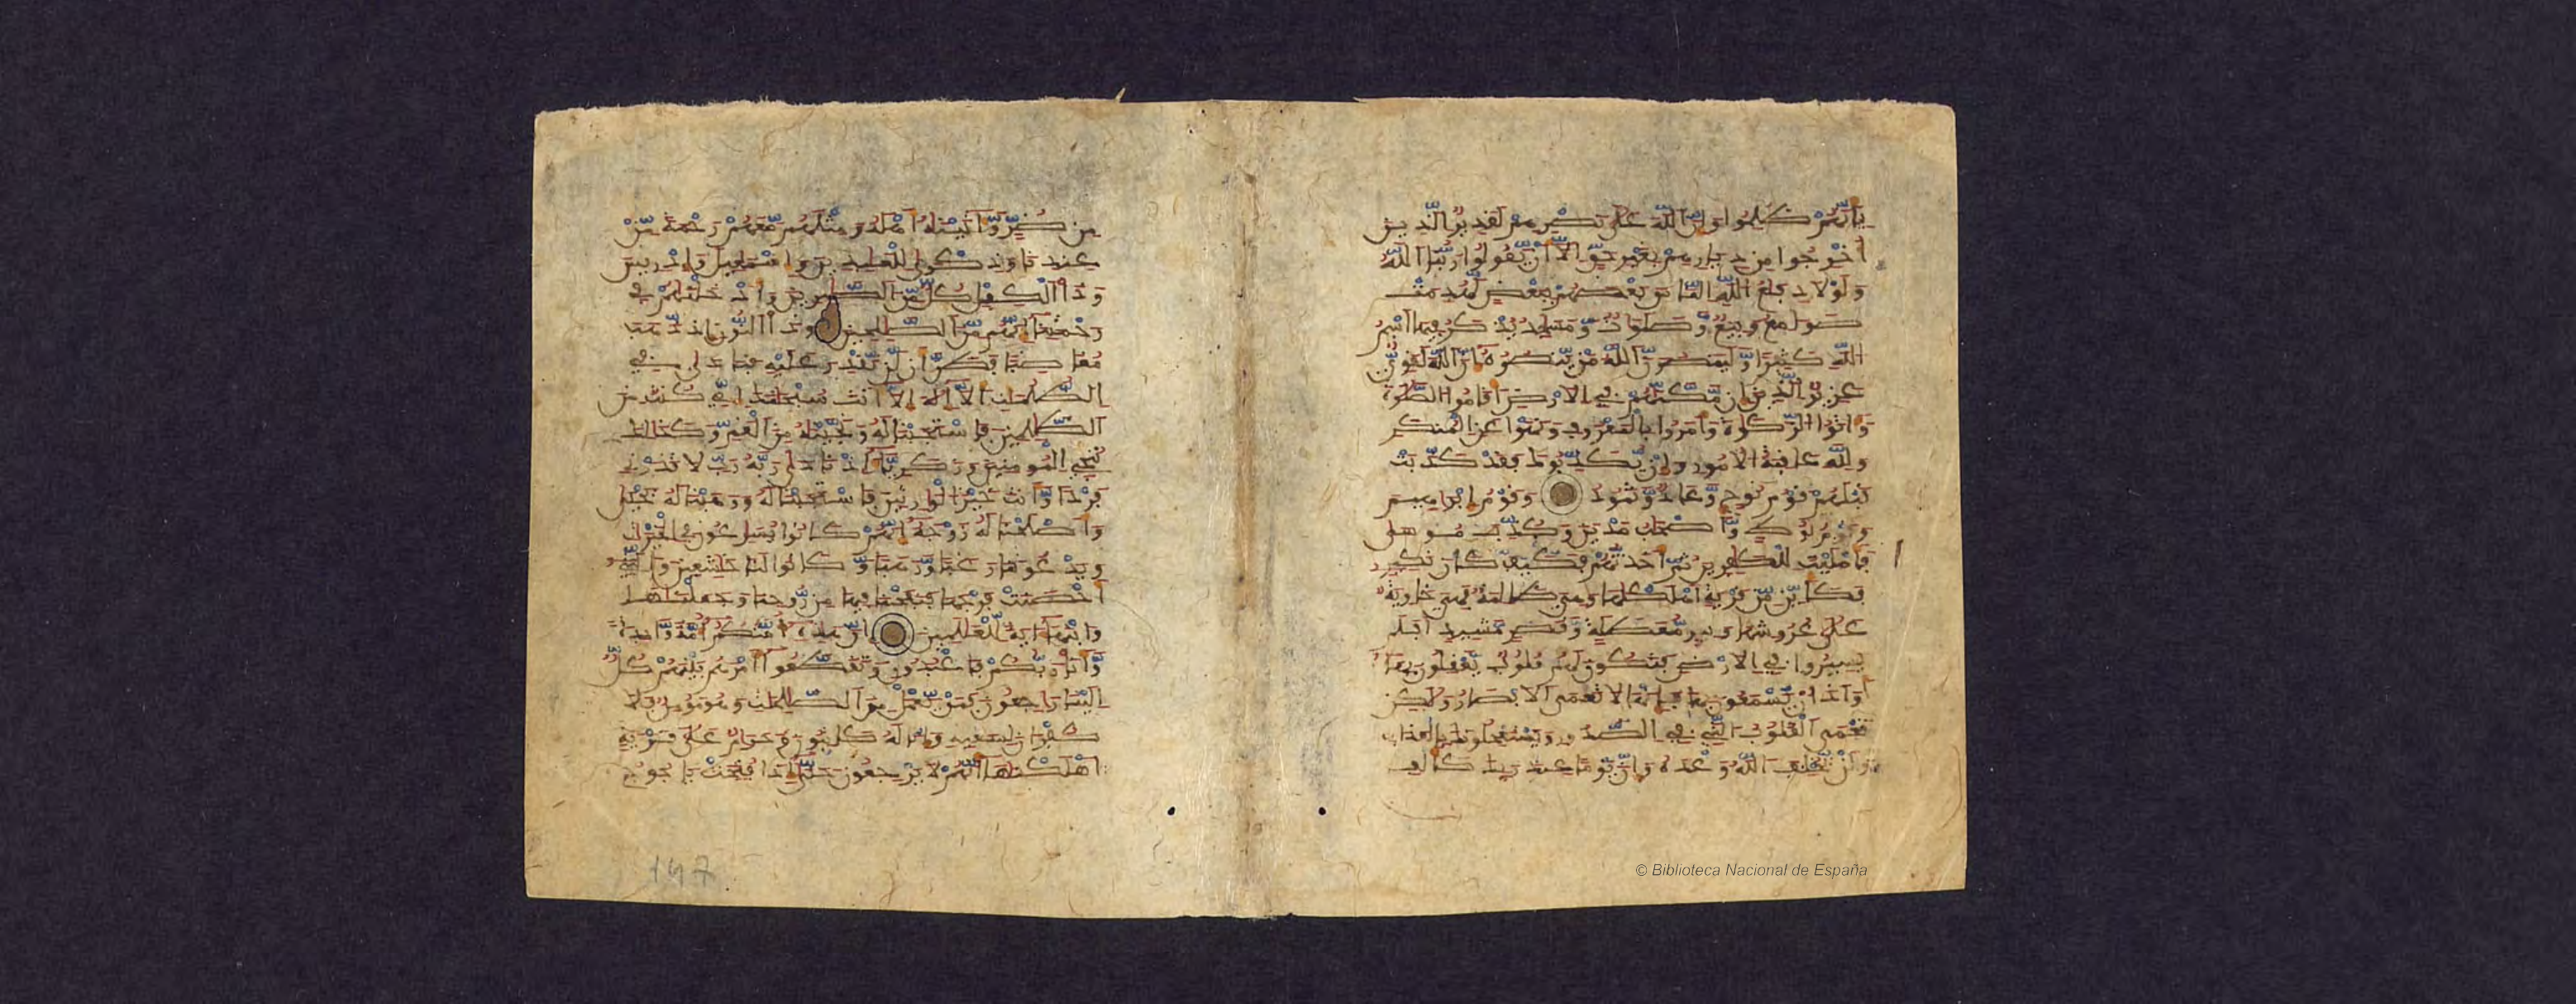 بِأَنَّهُمْ ظُلِمُوا وَإِنَّ اللَّهَ عَلَى نَصْرِهِمْ لَقَدِيرٌ الَّذِينَ
أُخْرِجُوا مِن دِيَارِهِمْ بِغَيْرِ حَقٍّ إِلَّا أَنْ يَّقُولُوا رَبُّنَا اللَّهُ
وَلَوْلَا دِفَاعُ اللَّهِ النَّاسَ بَعْضَهُمْ بِبَعْضٍ لَّهُدِمَتْ
صَوَامِعُ وَبِيَعٌ وَّصَلَوَاتٌ وَّمَسَاجِدُ يُذْكَرُ فِيهَا اسْمُ
اللَّهِ كَثِيرًا وَّلَيَنصُرَنَّ اللَّهُ مَنْ يَّنصُرُهُ إِنَّ اللَّهَ لَقَوِيٌّ
عَزِيزٌ الَّذِينَ إِن مَّكَّنَّاهُمْ فِي الْأَرْضِ أَقَامُوا الصَّلَوٰةَ
وَءَاتَوُا الزَّكَوٰةَ وَأَمَرُوا بِالْمَعْرُوفِ وَنَهَوْا عَنِ الْمُنكَرِ
وَلِلَّهِ عَاقِبَةُ الْأُمُورِ وَإِنْ يُّكَذِّبُوكَ فَقَدْ كَذَّبَتْ
قَبْلَهُمْ قَوْمُ نُوحٍ وَّعَادٌ وَّثَمُودُ وَقَوْمُ إِبْرَاهِيمَ
وَقَوْمُ لُوطٍ وَّأَصْحَٰبُ مَدْيَنَ وَكُذِّبَ مُوسَىٰ
فَأَمْلَيْتُ لِلْكَٰفِرِينَ ثُمَّ أَخَذْتُهُمْ فَكَيْفَ كَانَ نَكِيرِ
فَكَأَيِّن مِّن قَرْيَةٍ أَهْلَكْنَٰهَا وَهِيَ ظَالِمَةٌ فَهِيَ خَاوِيَةٌ
عَلَىٰ عُرُوشِهَا وَبِيرٍ مُّعَطَّلَةٍ وَّقَصْرٍ مَّشِيدٍ أَفَلَمْ
يَسِيرُوا فِي الْأَرْضِ فَتَكُونَ لَهُمْ قُلُوبٌ يَّعْقِلُونَ بِهَا
أَوْ ءَاذَانٌ يَّسْمَعُونَ بِهَا فَإِنَّهَا لَا تَعْمَى الْأَبْصَارُ وَلَٰكِن
تَعْمَى الْقُلُوبُ الَّتِي فِي الصُّدُورِ وَيَسْتَعْجِلُونَكَ بِالْعَذَابِ
وَلَنْ يُّخْلِفَ اللَّهُ وَعْدَهُ وَإِنَّ يَوْمًا عِندَ رَبِّكَ كَأَلْفِ
مِن ضُرٍّ وَّءَاتَيْنَٰهُ أَهْلَهُ وَمِثْلَهُم مَّعَهُمْ رَحْمَةً مِّنْ
عِندِنَا وَذِكْرَىٰ لِلْعَٰبِدِينَ وَإِسْمَٰعِيلَ وَإِدْرِيسَ
وَذَا الْكِفْلِ كُلٌّ مِّنَ الصَّٰبِرِينَ وَأَدْخَلْنَٰهُمْ فِي
رَحْمَتِنَا إِنَّهُم مِّنَ الصَّٰلِحِينَ وَذَا النُّونِ إِذ ذَّهَبَ
مُغَاضِبًا فَظَنَّ أَن لَّن نَّقْدِرَ عَلَيْهِ فَنَادَىٰ فِي
الظُّلُمَٰتِ أَن لَّا إِلَٰهَ إِلَّا أَنتَ سُبْحَٰنَكَ إِنِّي كُنتُ مِنَ
الظَّٰلِمِينَ فَاسْتَجَبْنَا لَهُ وَنَجَّيْنَٰهُ مِنَ الْغَمِّ وَكَذَٰلِكَ
نُنجِي الْمُومِنِينَ وَزَكَرِيَّاءَ إِذْ نَادَىٰ رَبَّهُ رَبِّ لَا تَذَرْنِي
فَرْدًا وَّأَنتَ خَيْرُ الْوَٰرِثِينَ فَاسْتَجَبْنَا لَهُ وَوَهَبْنَا لَهُ يَحْيَىٰ
وَأَصْلَحْنَا لَهُ زَوْجَهُ إِنَّهُمْ كَانُوا يُسَٰرِعُونَ فِي الْخَيْرَٰتِ
وَيَدْعُونَنَا رَغَبًا وَّرَهَبًا وَّكَانُوا لَنَا خَٰشِعِينَ وَالَّتِي
أَحْصَنَتْ فَرْجَهَا فَنَفَخْنَا فِيهَا مِن رُّوحِنَا وَجَعَلْنَٰهَا
وَابْنَهَا ءَايَةً لِّلْعَٰلَمِينَ إِنَّ هَٰذِهِ أُمَّتُكُمْ أُمَّةً وَّٰحِدَةً
وَّأَنَا رَبُّكُمْ فَاعْبُدُونِ وَتَقَطَّعُوا أَمْرَهُم بَيْنَهُمْ كُلٌّ
إِلَيْنَا رَٰجِعُونَ فَمَنْ يَّعْمَلْ مِنَ الصَّٰلِحَٰتِ وَهُوَ مُومِنٌ فَلَا
كُفْرَانَ لِسَعْيِهِ وَإِنَّا لَهُ كَٰتِبُونَ وَحَرَٰمٌ عَلَىٰ قَرْيَةٍ
أَهْلَكْنَٰهَا أَنَّهُمْ لَا يَرْجِعُونَ حَتَّىٰ إِذَا فُتِحَتْ يَاجُوجُ
147
© Biblioteca Nacional de España